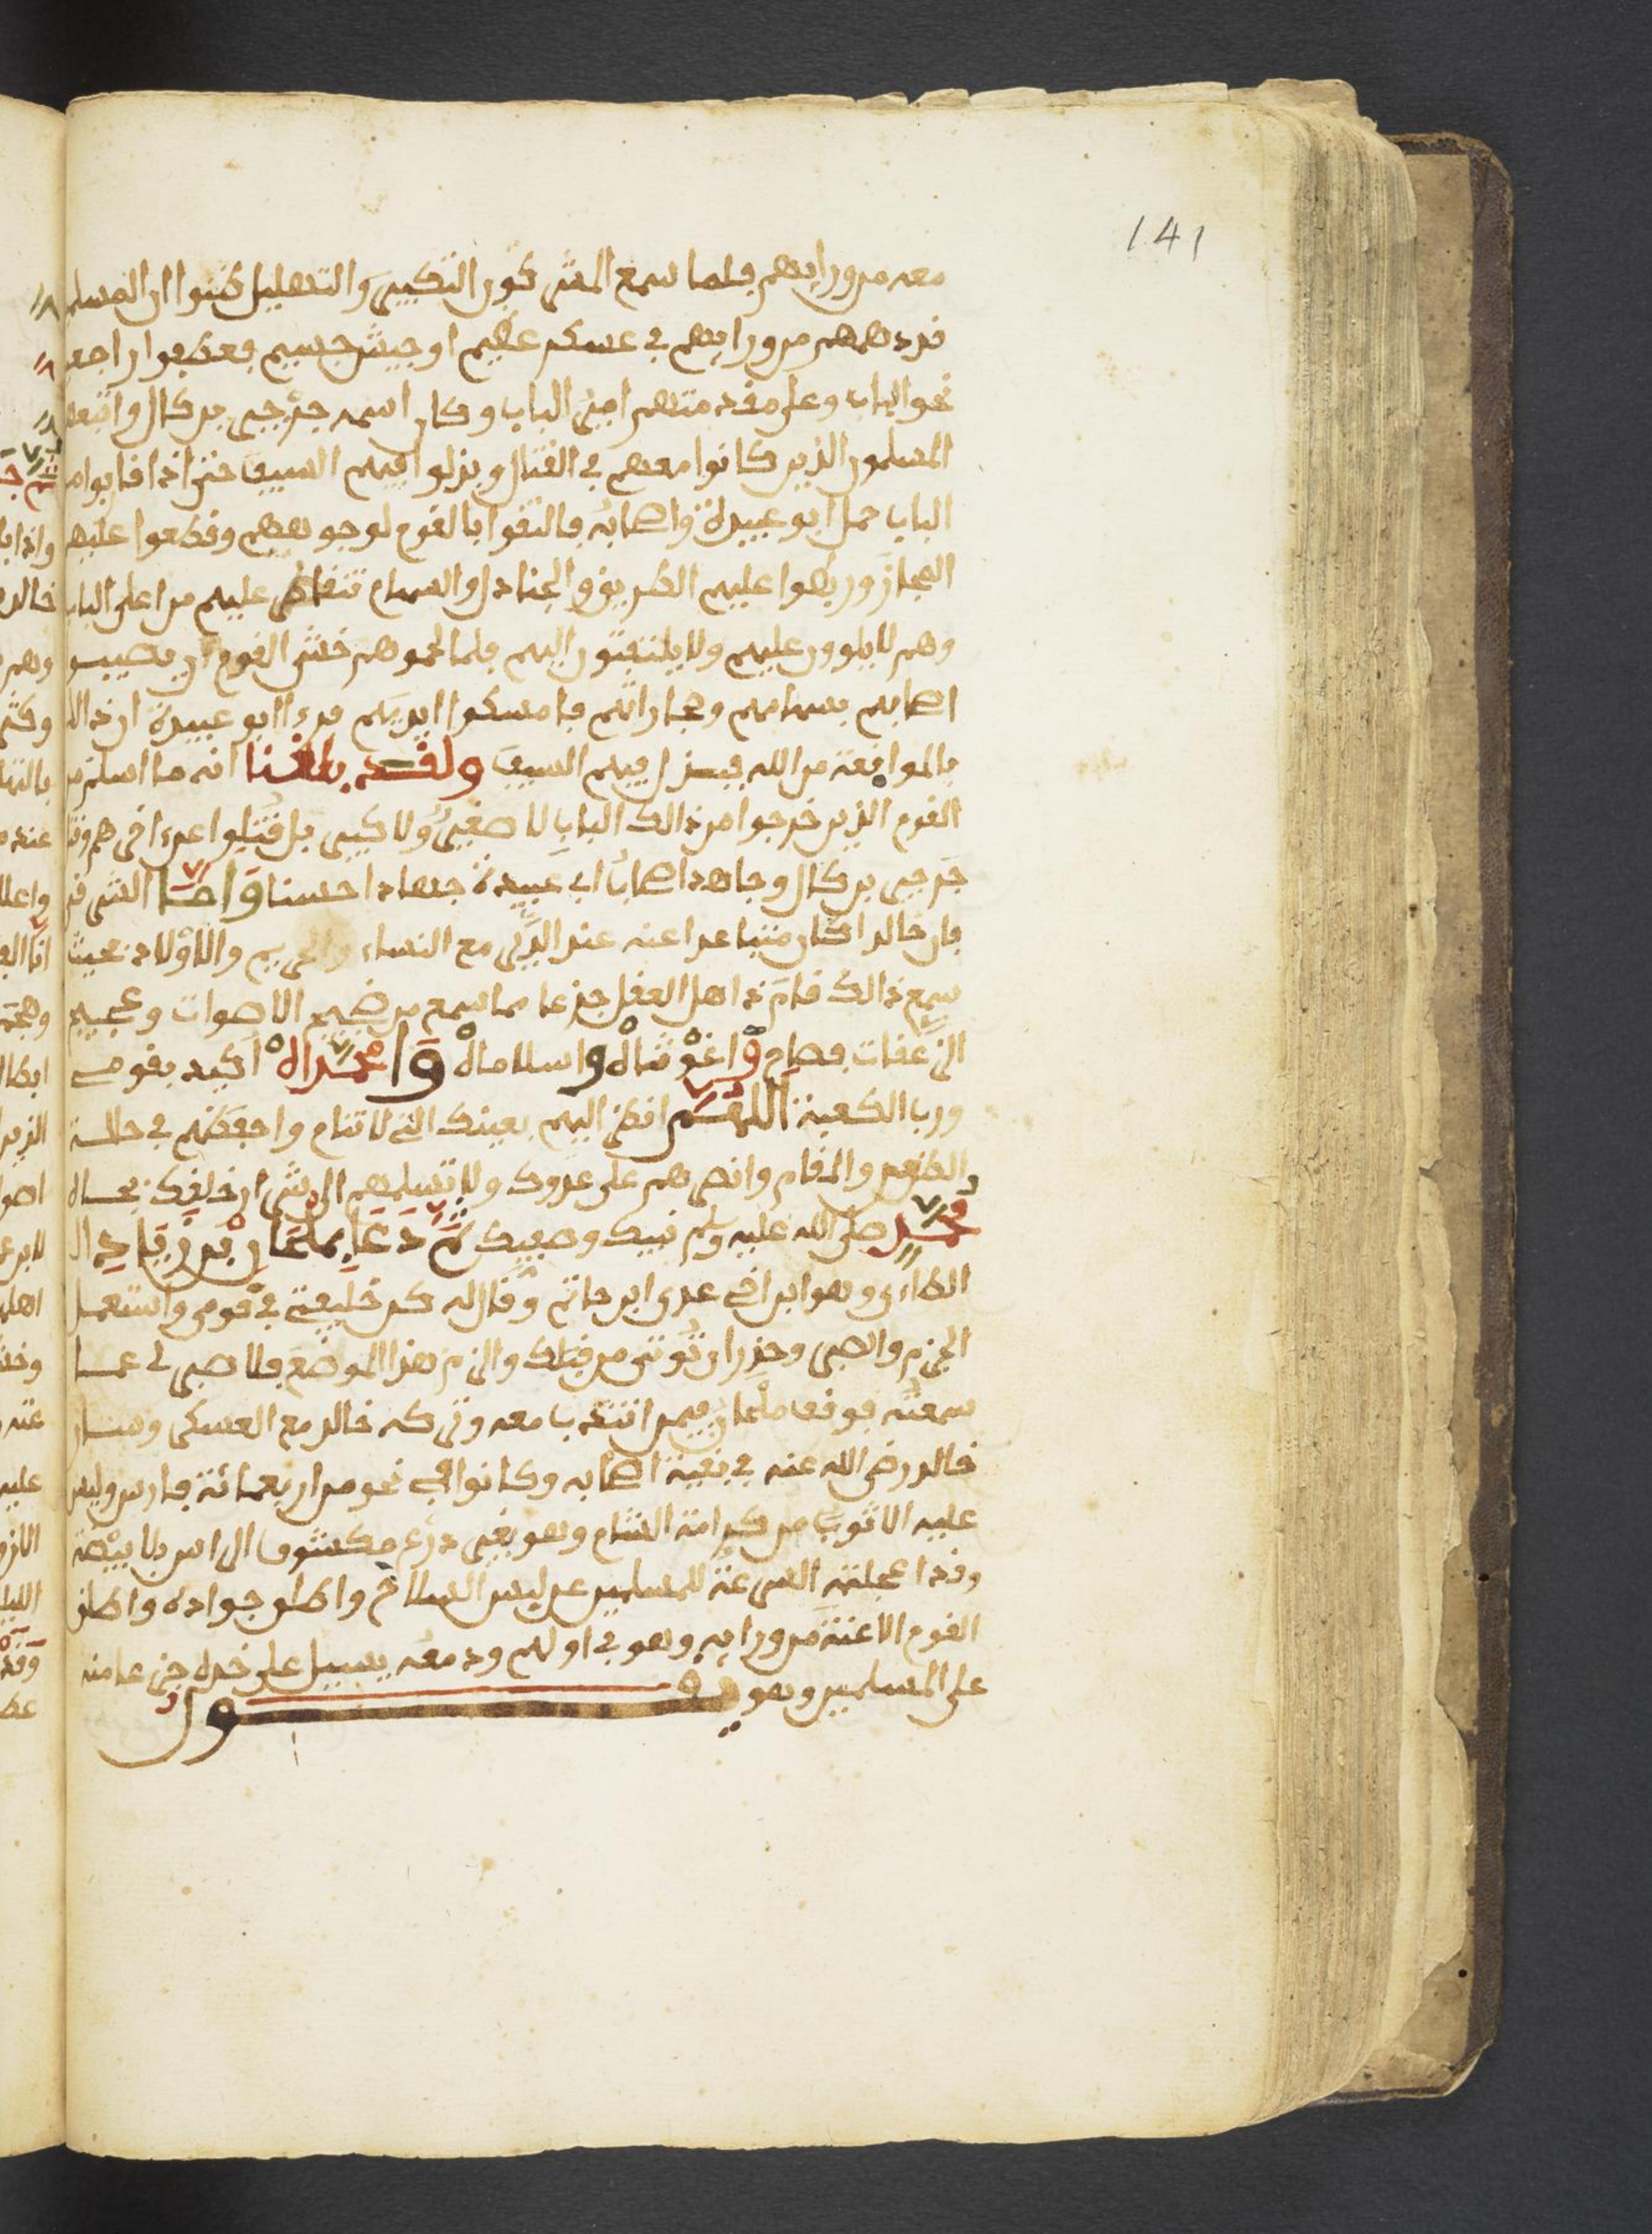 141
معه من ورايهم فلما سمع المشركون التكبير والتهليل ظنوا ان المسلمين
قد دهمهم من ورايهم في عسكر عظيم او جيش جسيم فعطفوا راجعين
نحو الباب وعلى مقدمتهم امير الباب وكان اسمه جرجي بن كال واتبعه
المسلمون الذين كانوا معهم في القتال وبذلوا فيهم السيف حتى اذا قاربوا من
الباب حمل ابو عبيدة واصحابه فالتقوا بالقوم لوجوههم وقطعوا عليهم
المجاز وربطوا عليهم الطريق والجنادل والسهام تتقاطر عليهم من اعلى الباب
وهم لا يلوون عليهم ولا يلتفتون اليهم فلما لحموهم خشي القوم ان يصيبوا
اصحابهم بسهامهم وحجاراتهم فامسكوا ايديهم فرءا ابو عبيدة ان ذالك
بالموافقة من الله فبذل فيهم السيف ولقد بلغنا انه ما اسلم من
القوم الذين خرجوا من ذالك الباب لا صغير ولا كبير بل قتلوا عن اخرهم وقتل
جرجي بن كال وجاهد اصحاب ابي عبيدة جهادا حسنا واما الشرقي
فان خالدا كان منتبا عدا عنه عند الدير مع النساء والحريم والاولاد بحيث
سمع ذالك قام ذاهل العقل جزعا مما سمع من ضجيج الاصوات وعجيج
الزعقات فصاح واغوثاه واسلاماه وا محمداه اكيد بقومي
ورب الكعبة اللهم انظر اليهم بعينك التي لا تنام واحفظهم في حالة
الطعن والمقام وانصرهم على عدوك ولا تسلمهم الى شرار خلقك بجاه
محمد صلى الله عليه وسلم نبيك وحبيبك ثم دعا بملحان بن زياد ال
الطاءي وهو ابن اخي عدي ابن حاتم وقال له كن خليفتي في قومي واستعمل
الحزم والصبر وحذر ان توتى من قبلك والزم هذا الموضع فلا صبر لي عما
سمعته فوقف ملحان فيمن انتدب معه وتركه خالد مع العسكر وسار
خالد رضي الله عنه في بقية اصحابه وكانوا في نحو من اربعمائة فارس وليس
عليه الا ثوب من كرامة الشام وهو بغير درع مكشوف الراس بلا بيضة
وقد اعجلته السرعة للمسلمين عن لبس السلاح واطلق جواده واطلق
القوم الاعنة من ورايه وهو في اولهم ودمعه يسيل على خده جزعا منه
على المسلمين وهو يقول